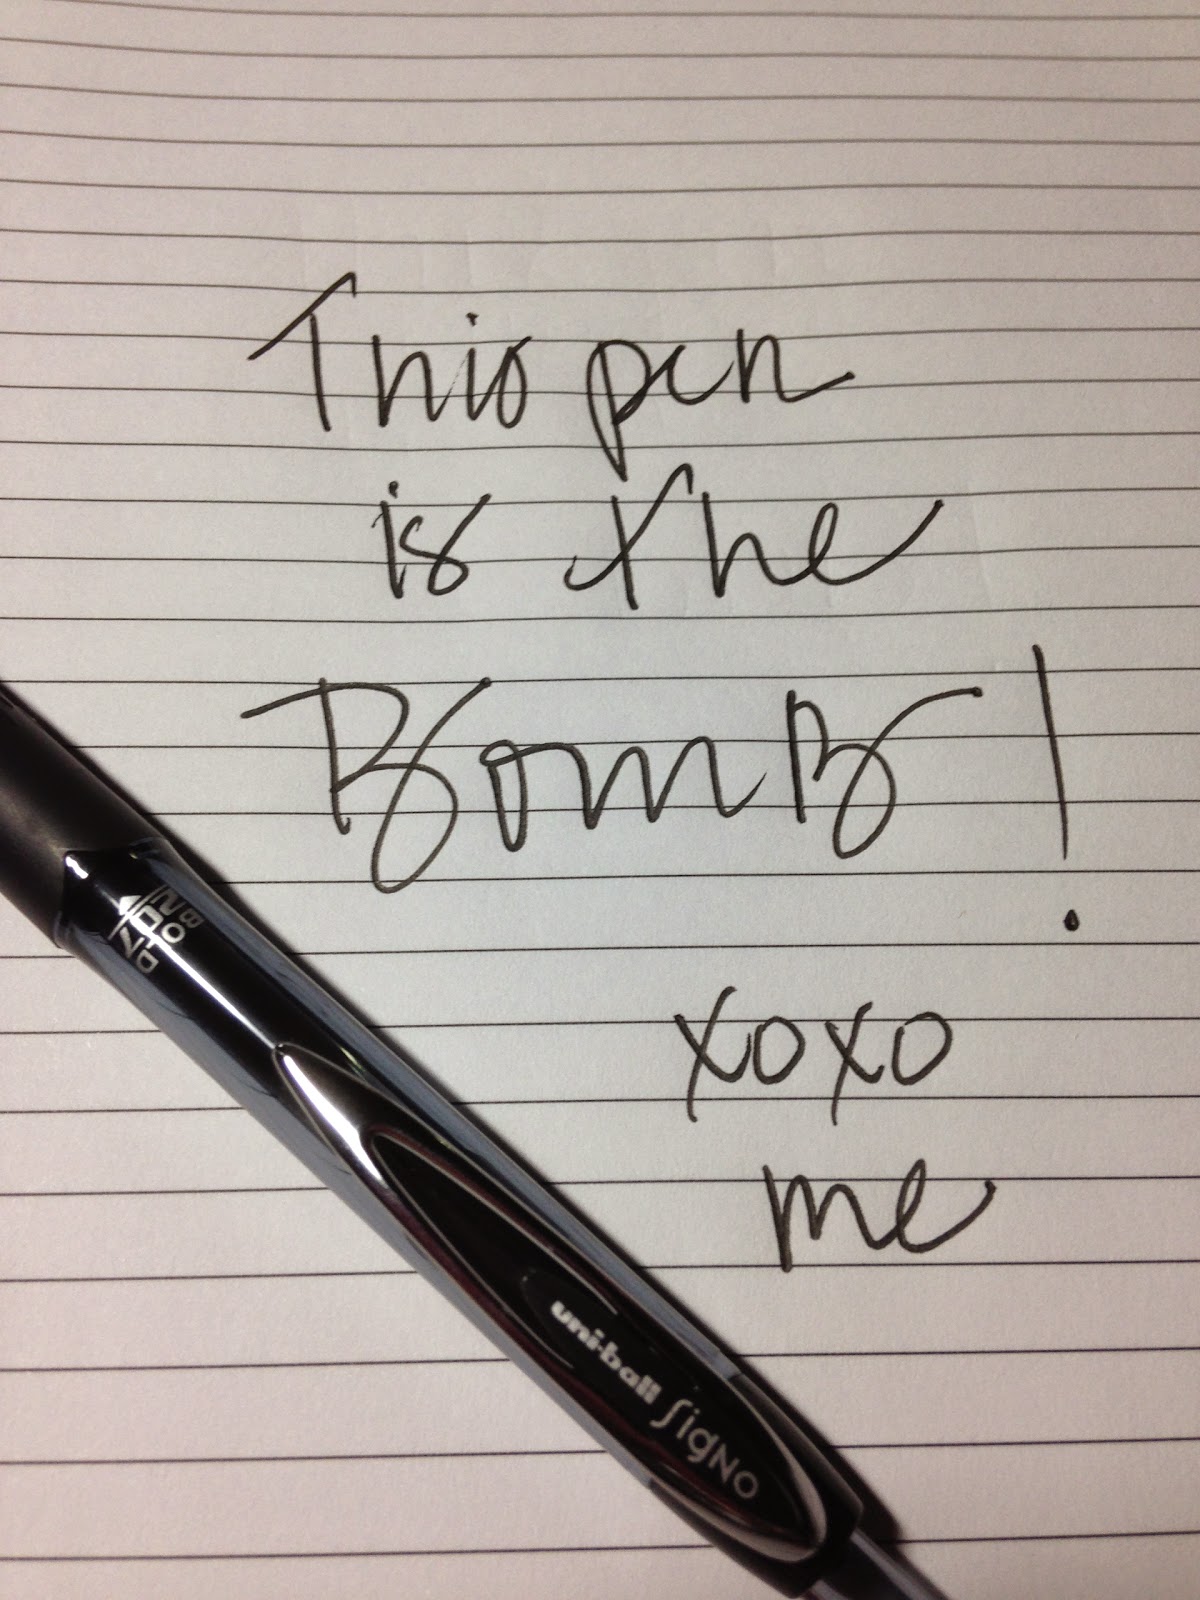 This pen
is the
BomB!
xoxo
me
BOLD
207
uni-ball SigNO